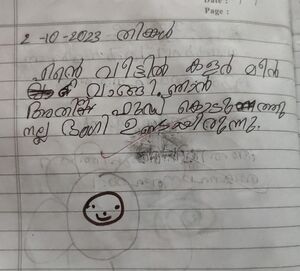 Date :
Page :
2-10-2023 തിങ്കൾ
എന്റെ വീട്ടിൽ കളർ മീൻ
വാങ്ങി. ഞാൻ
അതിന് ഫുഡ് കൊടുത്തു
നല്ല ഭംഗി ഉണ്ടായിരുന്നു.